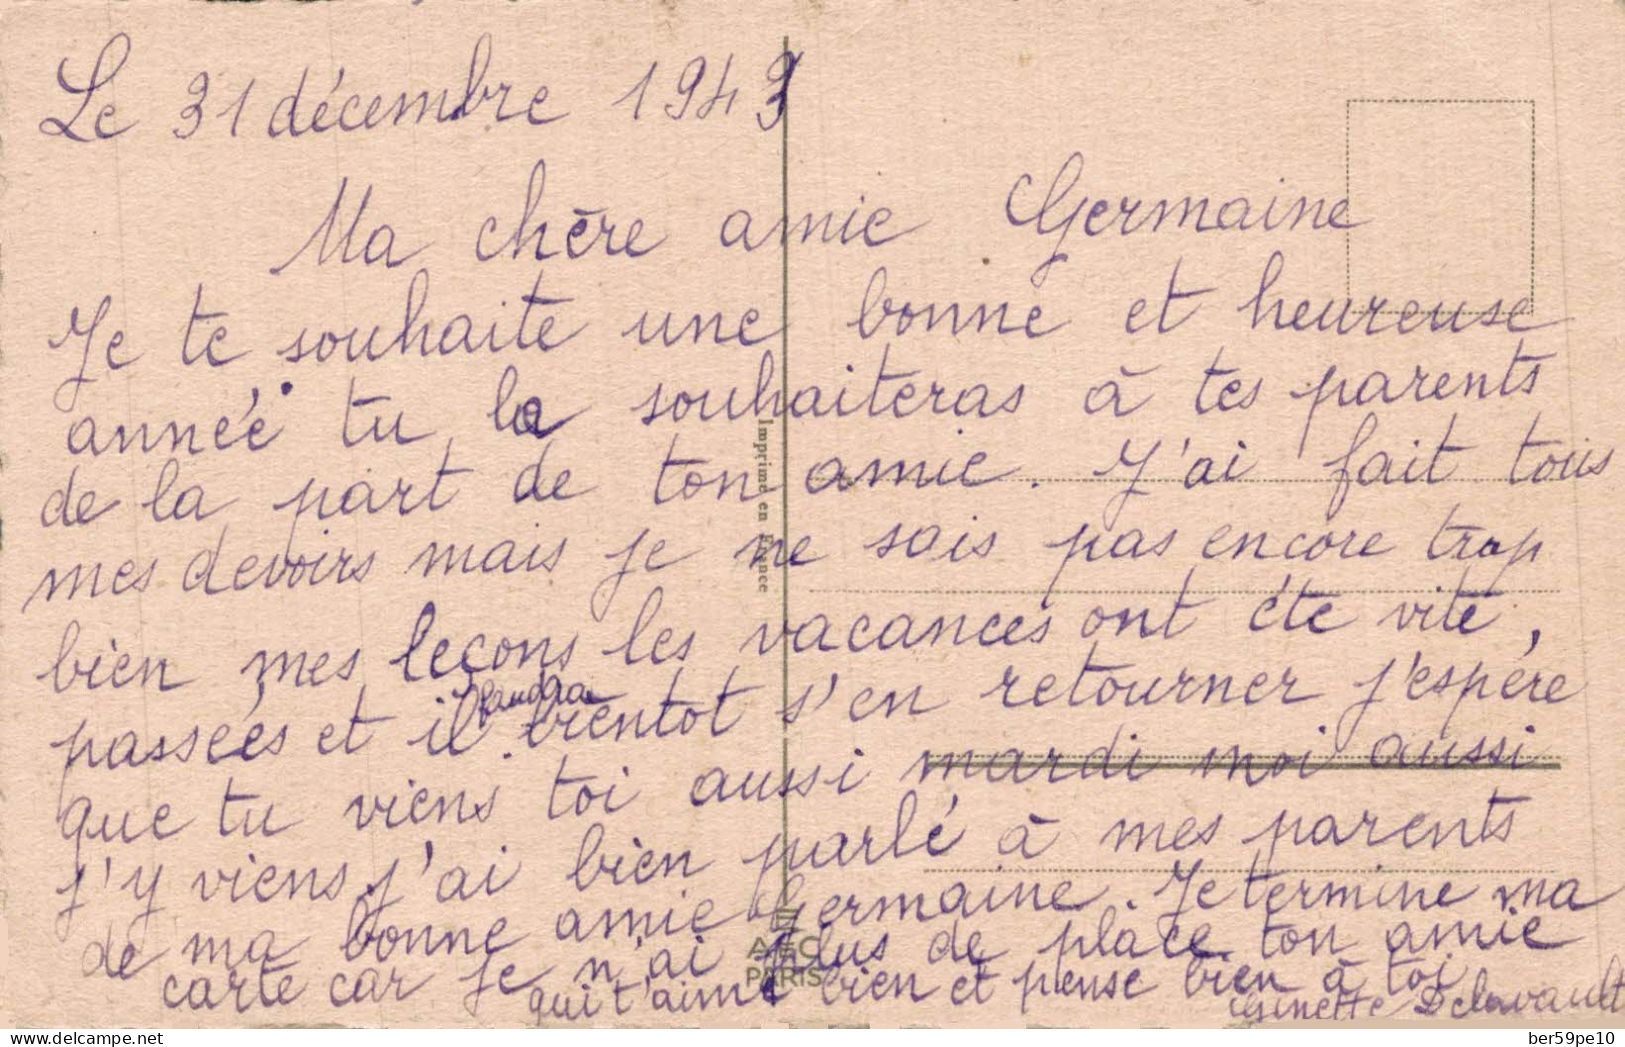 Le 31 décembre 1943
Ma chère amie Germaine
Je te souhaite une bonne et heureuse
année. tu la souhaiteras à tes parents
de la part de ton amie. J'ai fait tous
mes devoirs mais je ne sais pas encore trop
bien mes leçons les vacances ont été vite,
faudra
passées et il bientot s'en retourner j'espère
que tu viens toi aussi mardi moi aussi
j'y viens. j'ai bien parlé à mes parents
de ma bonne amie Germaine. Je termine ma
carte car je n'ai plus de place. ton amie
qui t'aime bien et pense bien à toi
Ginette Delavault
Imprimé en France
PARIS
delcampe.net
ber59pe10